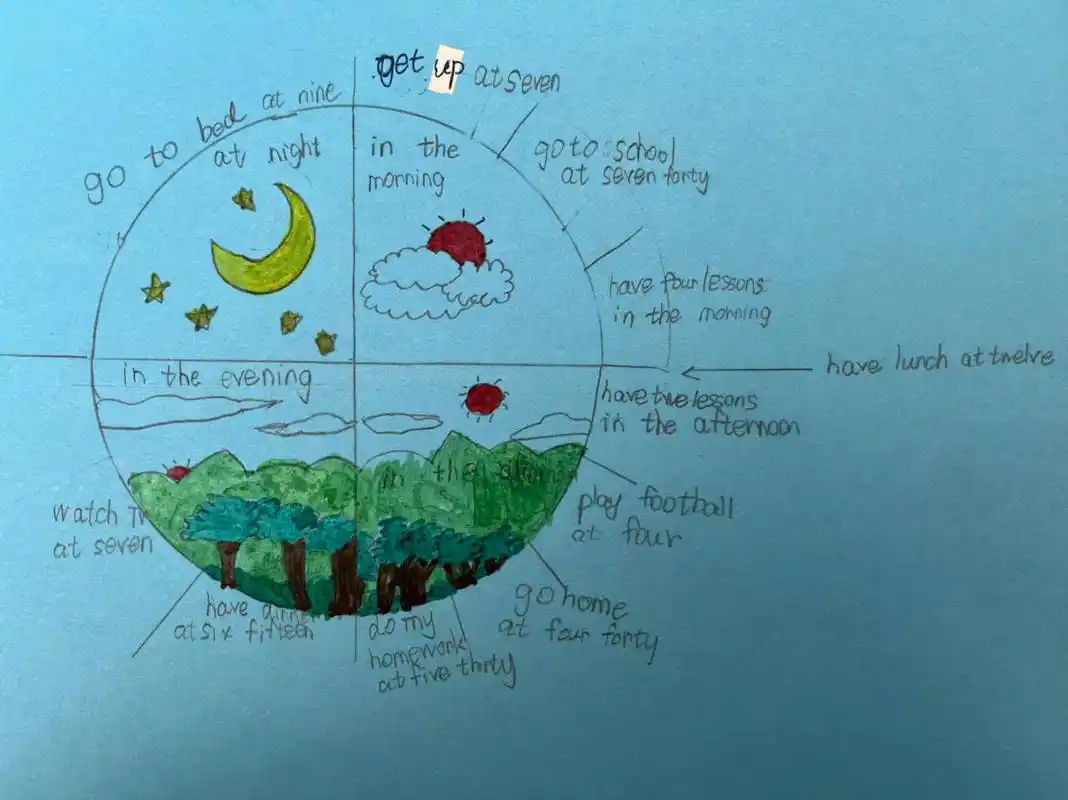 get up at seven
go to school
at seven forty
have four lessons
in the morning
have lunch at twelve
have two lessons
in the afternoon
play football
at four
go home
at four forty
do my
homework
at five thirty
have dinner
at six fifteen
watch TV
at seven
go to bed at nine
at night
in the
morning
in the evening
in the